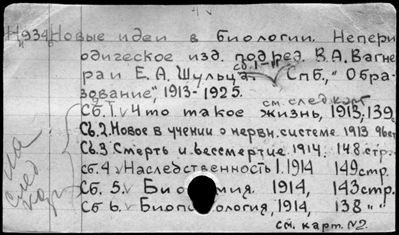 H934 Новые идеи в биологии. Непери
одическое изд. под ред. В. А. Вагне
ра и Е. А. Шульца Сб. I-VI Спб., "Обра-
зование", 1913-1925.
см. след карт
Сб. I. Что такое жизнь, 1913, 139
Сб. 2. Новое в учении о нервн. системе 1913 96 ст
Сб. 3 Смерть и бессмертие 1914. 148 стр.
сб. 4 Наследственность I. 1914 149 стр.
Сб. 5. Био мия. 1914, 143 стр.
Сб 6. Биопс логия, 1914, 138 " "
см. карт. №2.
на
след
кар